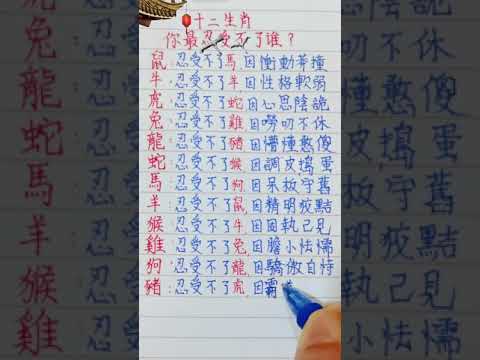 十二生肖
你最忍受不了誰？
鼠:忍受不了馬,因衝動莽撞
牛:忍受不了羊,因性格軟弱
虎:忍受不了蛇,因心思陰詭
兔:忍受不了雞,因嘮叨不休
龍:忍受不了豬,因懵懂憨傻
蛇:忍受不了猴,因調皮搗蛋
馬:忍受不了狗,因呆板守舊
羊:忍受不了鼠,因精明狡黠
猴:忍受不了牛,因固執己見
雞:忍受不了兔,因膽小怯懦
狗:忍受不了龍,因驕傲自恃
豬:忍受不了虎,因霸